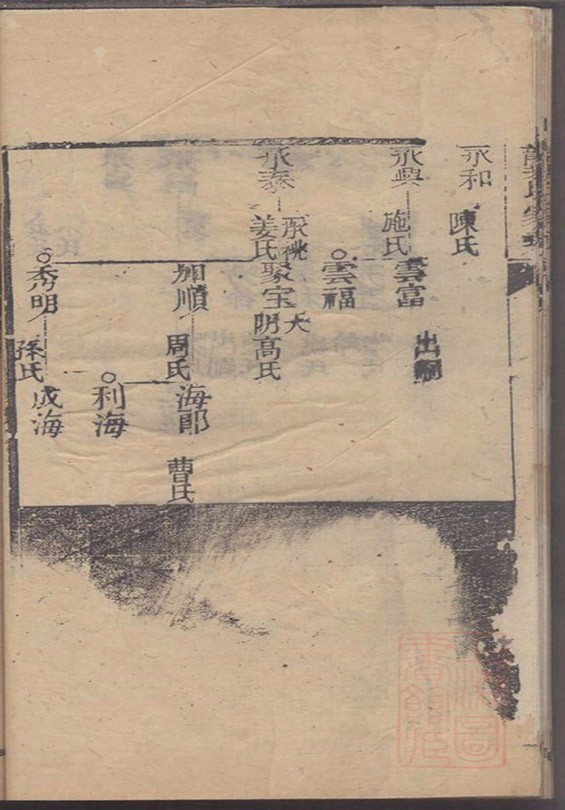 永和
陳氏
永興
施氏
雲富
出嗣
雲福
永泰
承祧
姜氏
聚宝
大
明高氏
加順
周氏
海郎
曹氏
利海
秀明
孫氏
成海